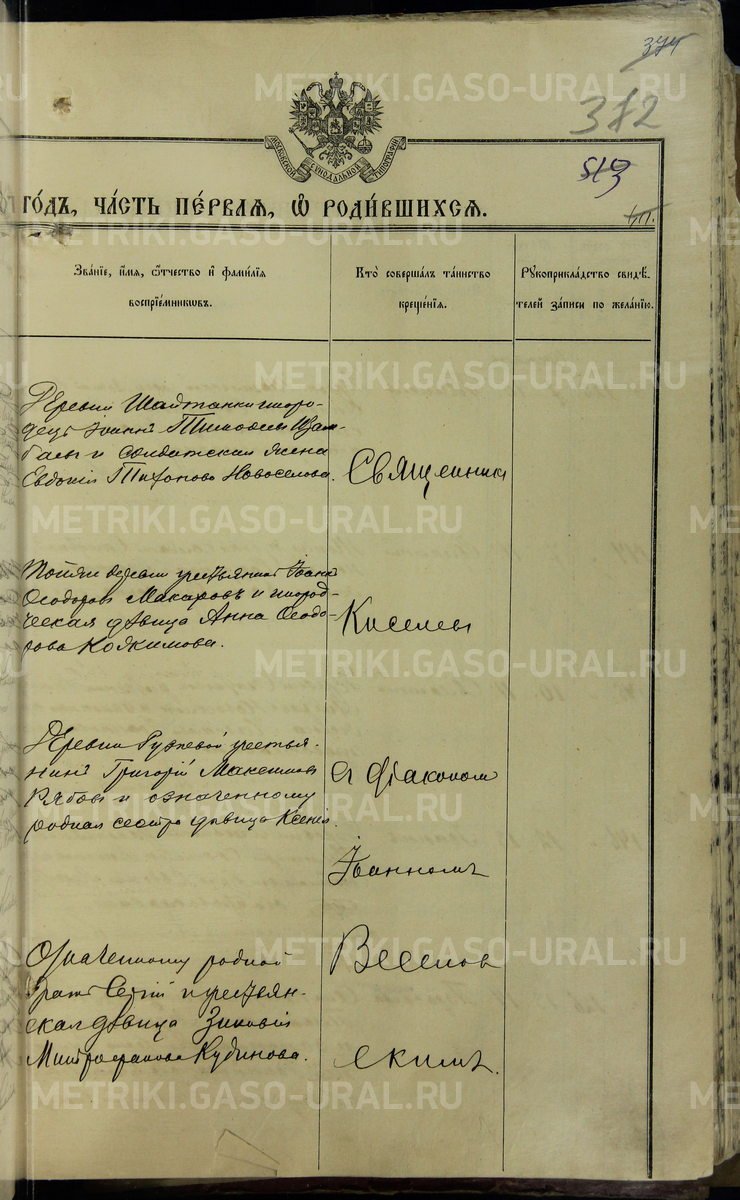 374
372
513
МОСКОВСКОЙ СѴНОДАЛЬНОЙ ТИПОГРАФІИ
ГО́ДЪ, ЧА́СТЬ ПЕ́РВАЯ, Ѡ҆ РОДИ́ВШИХСЯ.
Зва́нїе, и҆́мя, ѻ҆́тчество и҆ фами́лїя
воспрїе́мникѡвъ.
Кто̀ соверша́лъ та́инство
креще́нїя.
Рꙋкоприкла́дство свидѣ́-
телей за́писи по жела́нїю.
Деревни Шайтанки иноро-
децъ Іоаннъ Тимофеевъ
и солдатская жена
Евдокія Тихонова Новоселова.
Священникъ
Той же деревни крестьянинъ Іоаннъ
Ѳеодоровъ Макаровъ и инород-
ческая дѣвица Анна Ѳеодо-
рова
Киселевъ
Деревни крестья-
нинъ Григорій Максимовъ
Рябовъ и означенному
родная сестра дѣвица Ксенія.
съ діакономъ
Іоанномъ
Означенному родной
братъ Сергій и крестьян-
ская дѣвица Зиновія
Митрофанова Кудинова.
Веселов
скимъ.
METRIKI.GASO-URAL.RU